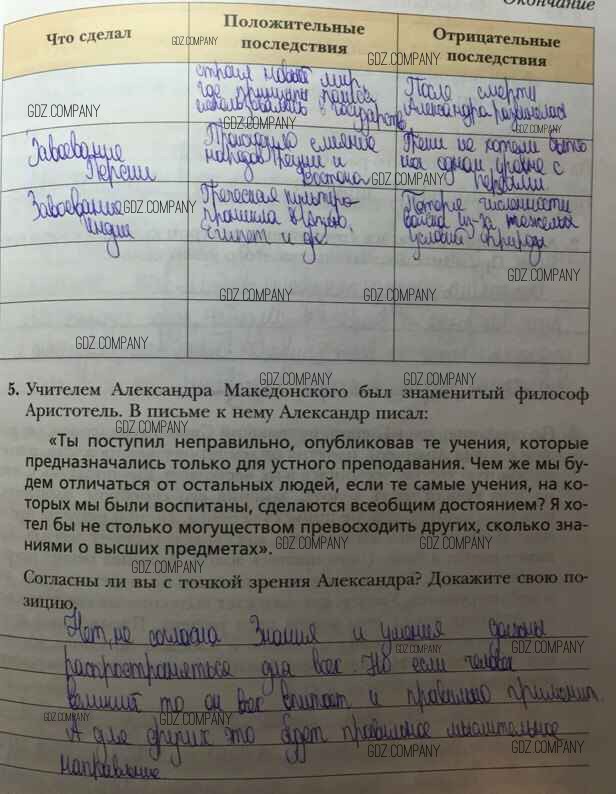 Окончание
Что сделал
Положительные
последствия
Отрицательные
последствия
GDZ.COMPANY
строил новый мир,
где принципы полиса
использовались в государстве
После смерти
Александра развилась
Завоевание
Персии
Происходило слияние
народов Греции и
Востока
Греки не хотели быть
на одном уровне с
персами.
Завоевание
Индии
Греческая культура
проникла в Индию,
Египет и др.
Потеря численности
войска из-за тяжелых
условий природы
5. Учителем Александра Македонского был знаменитый философ
Аристотель. В письме к нему Александр писал:
«Ты поступил неправильно, опубликовав те учения, которые
предназначались только для устного преподавания. Чем же мы бу-
дем отличаться от остальных людей, если те самые учения, на ко-
торых мы были воспитаны, сделаются всеобщим достоянием? Я хо-
тел бы не столько могуществом превосходить других, сколько зна-
ниями о высших предметах».
Согласны ли вы с точкой зрения Александра? Докажите свою по-
зицию.
Нет, не согласна Знания и учения должны
распространяться для всех. Но если человек
великий то он все впитает и правильно применит.
А для других это будет правильное мыслительное
направление